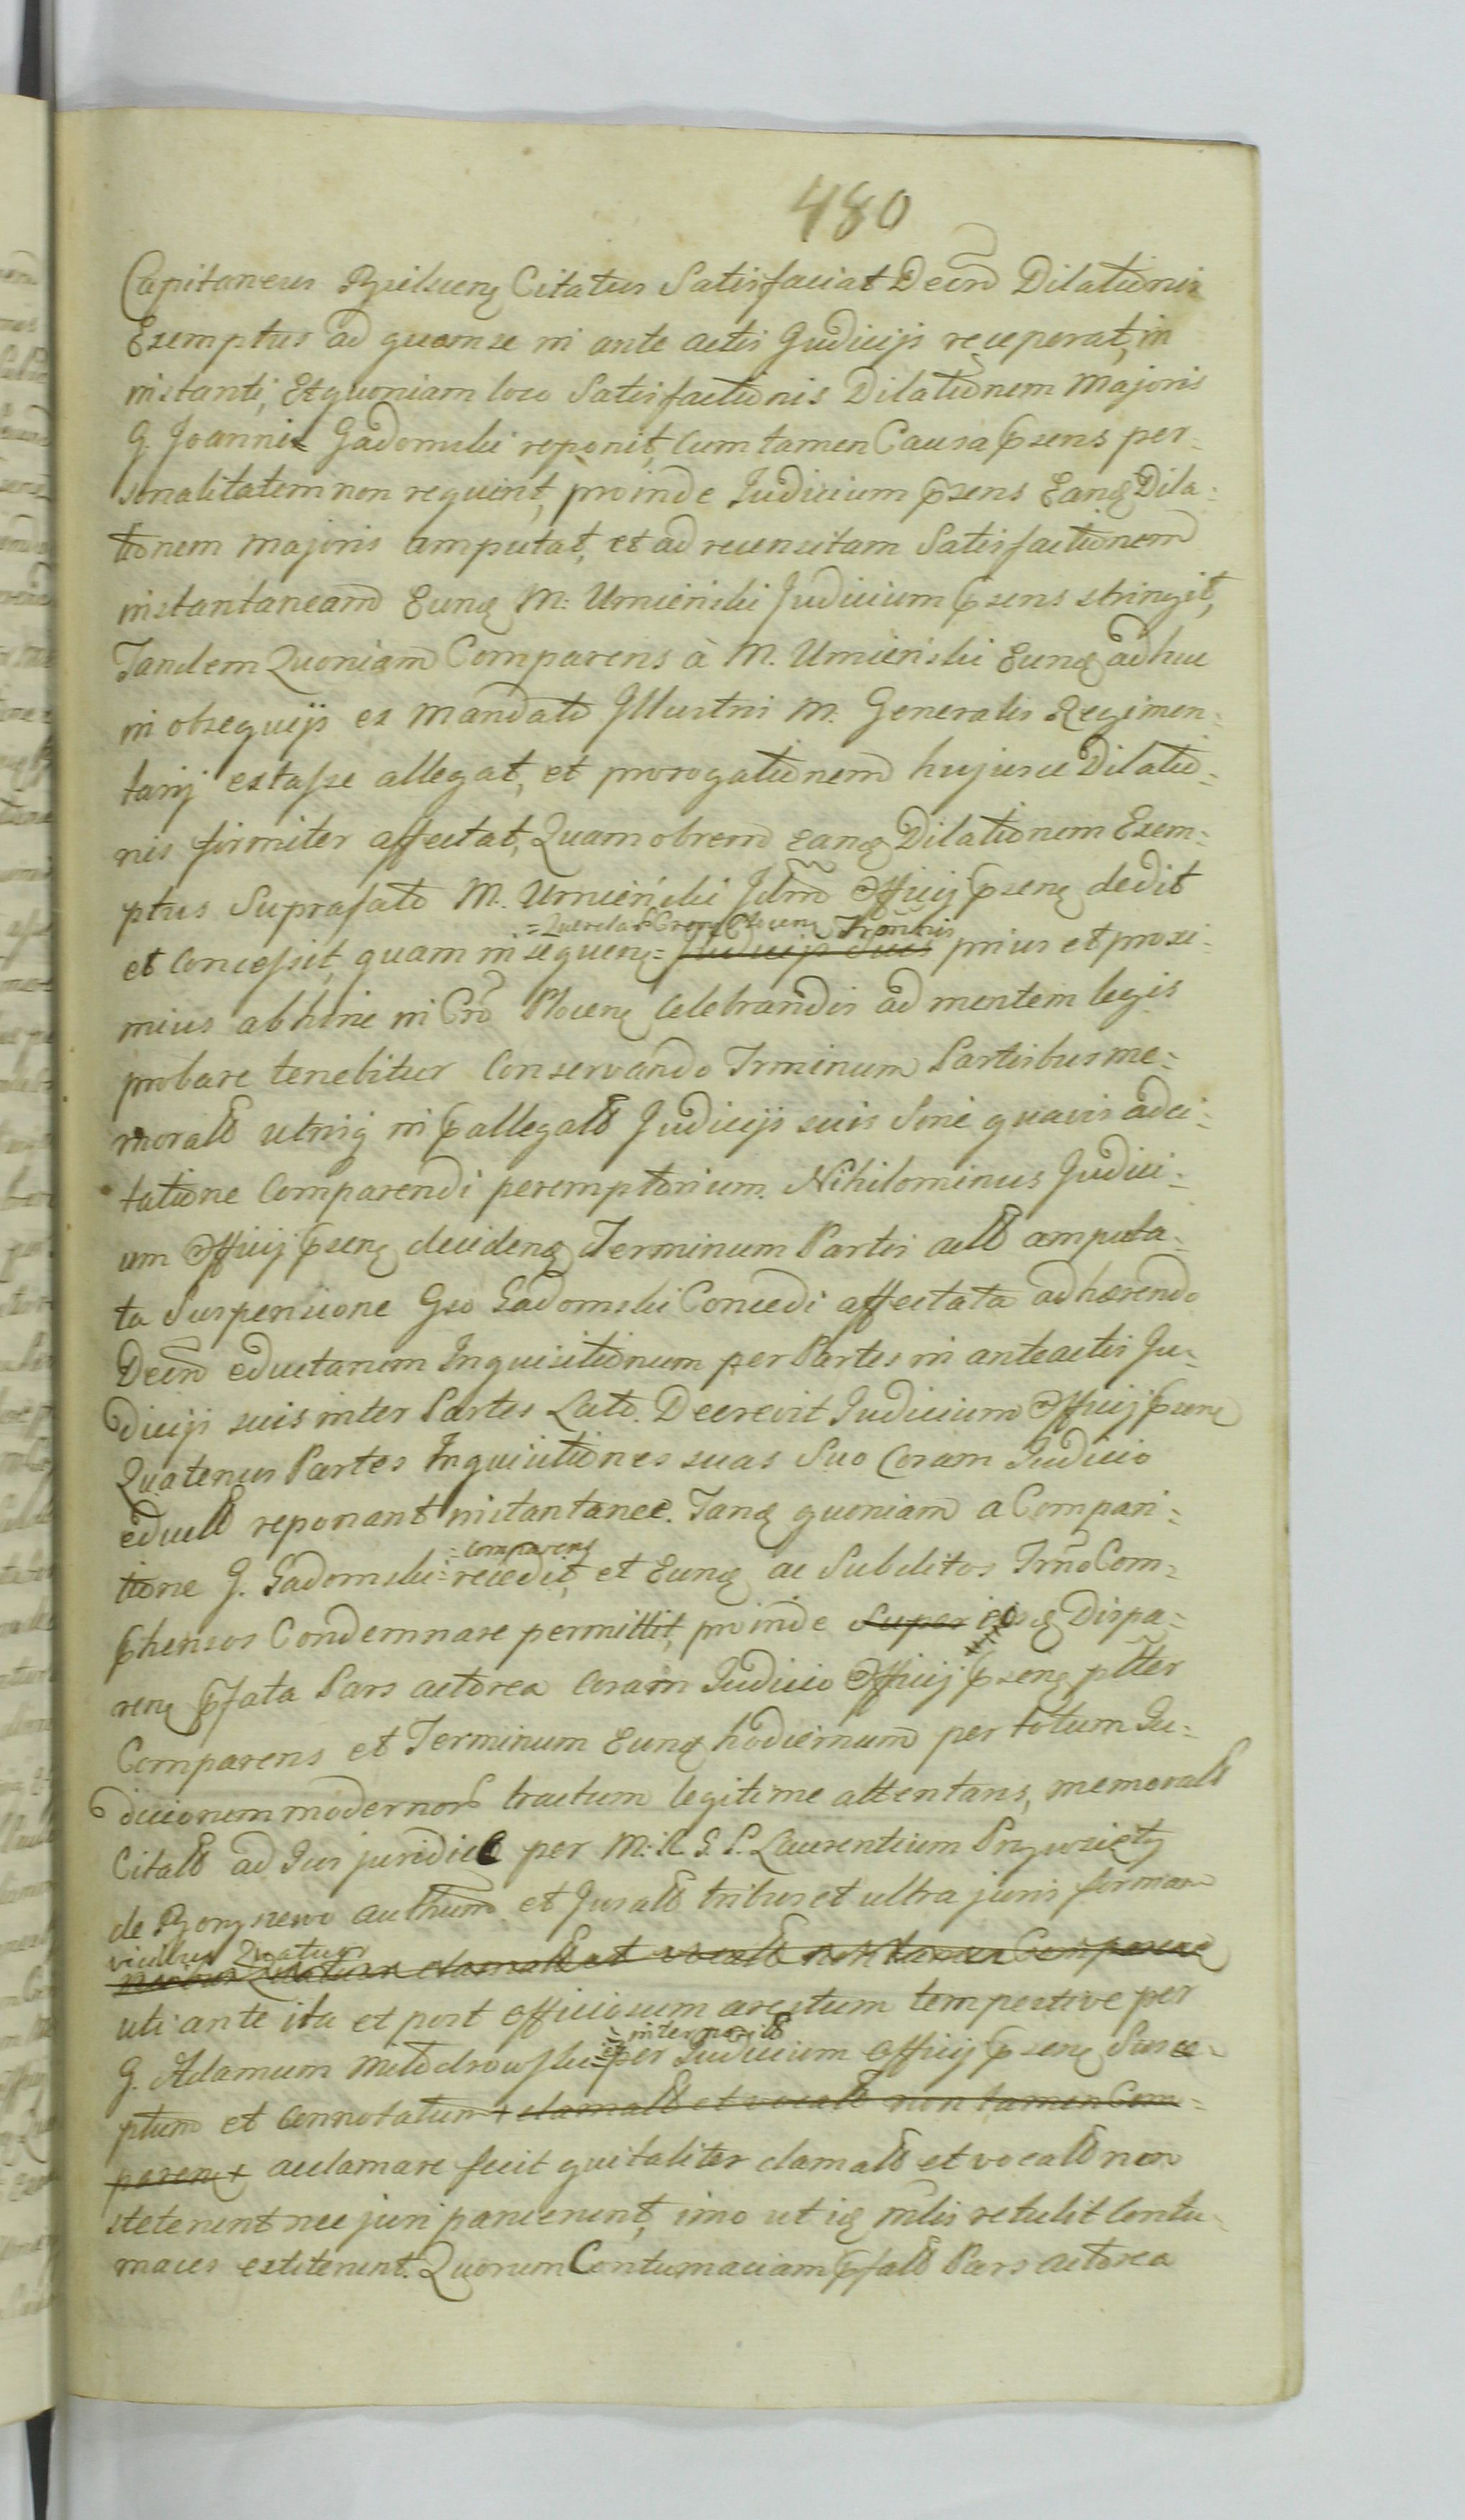 480
Capitaneus Citatus Satisfaciat Decro Dilationis
Exemptus ad quam se in ante actis Judicijs receperat, in
instanti, Et quoniam loco Satisfactionis Dilationem Majoris
G. Joannis Gadomski reponit, cum tamen Causa psens per-
sonalitatem non requirit, proinde Judicium psens Eandq Dila=
tionem majoris amputat, et ad recensitam Satisfactionem
instantaneam Eundq M: Umieński Judicium psens stringit,
Tandem Quoniam Comparens à M. Umieński Eundq adhuc
in obsequijs ex mandato Illustris M. Generalis Regimen-
tarij extasse allegat, et prorogationem hujusce Dilatio-
nis firmiter affectat, Quamobrem eandq Dilationem Exem=
ptus Suprafato M. Umieński Jdm Officij psens dedit
=Querelar Cren Plocen Trmnis
et Concessit, quam in sequen= Judicijs suis prius et proxi-
mius abhinc in Cro Plocen celebrandis ad mentem legis
probare tenebitur Conservando Trminum Partibus me=
morats utrisq in pallegats Judicijs suis Sine quavis adci-
tatione Comparendi peremptorium. Nihilominus Judici-
um Officij psens decidens Terminum Partis acts amputa-
ta Suspensione Gso Gadomski Concedi affectata adhærendo
Decro eductarum Inquisitionum per Partes in anteactis Ju-
dicijs suis inter Partes Lato. Decrevit Judicium Officij psens
Quatenus Partes Inquisitiones suas Suo Coram Judicio
educts reponant instantanee. Tandq quoniam a Compari=
=comparens
tione G. Gadomski= recedit, et Eundq ac Subditos Trmo Com-
phensos Condemnare permittit, proinde Super iisdq Dispa=
rens pfata Pars actorea Coram Judicio Officij psens pltter
Comparens et Terminum Eundq hodiernum per totum Ju-
diciorum modernor tractum legitime attentans, memorats
Citats ad Jus juridice per M: R. G. P. Laurentium Przywzięty
de authum et Jurats tribus et ultra juris formam
vicibus Quatuor
vicibus Quatuor clamats et vocats non tamen Comparens
uti ante ita et post officiosum arestum tempestive per
interposits
G. Adamum Młodrowski= per Judicium Officij psens Susce-
ptum et Connotatum + clamats et vocats non tamen Com=
parens + acclamare fecit qui taliter clamats et vocats non
steterunt nec juri paruerunt, imo ut idq mlis retulit Contu-
maces extiterunt. Quorum Contumaciam pfats Pars actorea